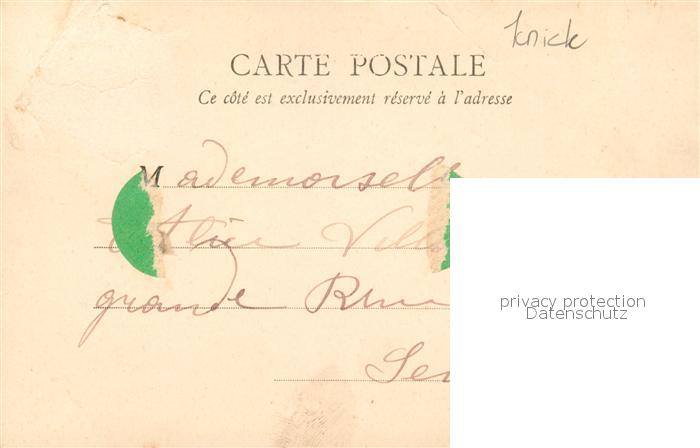 knick
CARTE POSTALE
Ce côté est exclusivement réservé à l'adresse
Mademoisell
Vill
grande
privacy protection
Datenschutz